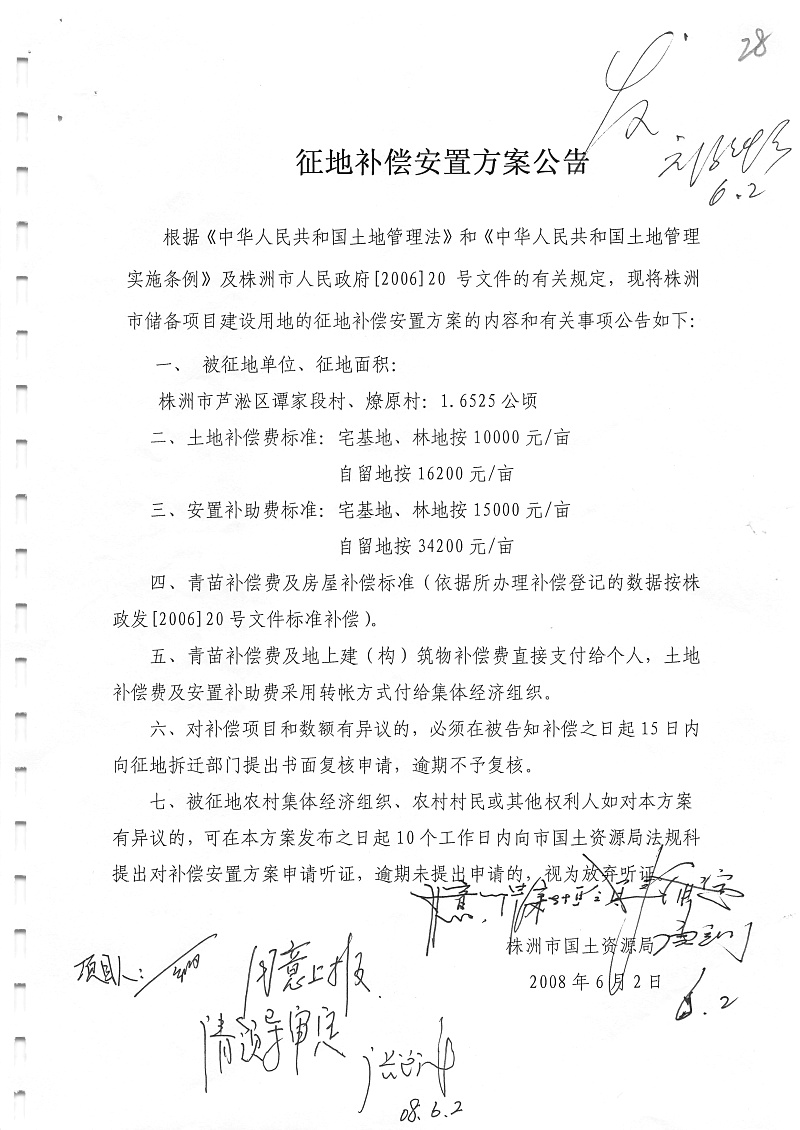 28
发
6.2
征地补偿安置方案公告
根据《中华人民共和国土地管理法》和《中华人民共和国土地管理
实施条例》及株洲市人民政府[2006]20 号文件的有关规定，现将株洲
市储备项目建设用地的征地补偿安置方案的内容和有关事项公告如下：
一、 被征地单位、征地面积：
株洲市芦淞区谭家段村、燎原村：1.6525 公顷
二、土地补偿费标准：宅基地、林地按 10000 元/亩
自留地按 16200 元/亩
三、安置补助费标准：宅基地、林地按 15000 元/亩
自留地按 34200 元/亩
四、青苗补偿费及房屋补偿标准（依据所办理补偿登记的数据按株
政发[2006]20 号文件标准补偿）。
五、青苗补偿费及地上建（构）筑物补偿费直接支付给个人，土地
补偿费及安置补助费采用转帐方式付给集体经济组织。
六、对补偿项目和数额有异议的，必须在被告知补偿之日起 15 日内
向征地拆迁部门提出书面复核申请，逾期不予复核。
七、被征地农村集体经济组织、农村村民或其他权利人如对本方案
有异议的，可在本方案发布之日起 10 个工作日内向市国土资源局法规科
提出对补偿安置方案申请听证，逾期未提出申请的，视为放弃听证
株洲市国土资源局
2008 年 6 月 2 日
6.2
项目人：
同意上报
请领导审定
08.6.2